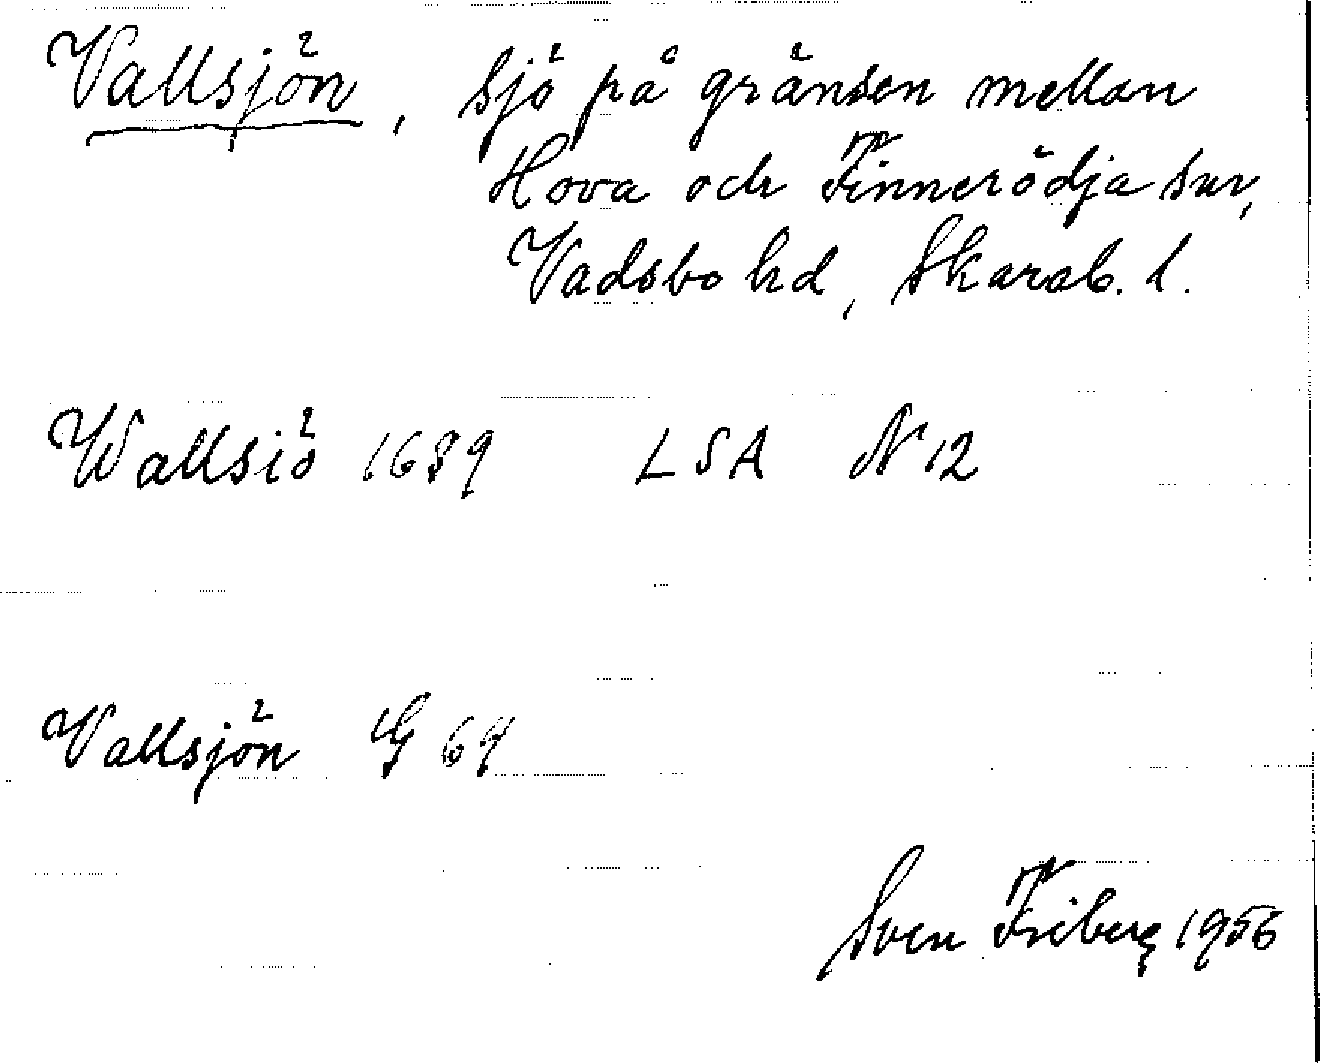 Vallsjön, sjö på gränsen mellan
Hova och Finnerödja snr,
Vadsbo hd, Skarab. l.
Wallsiö 1689 LSA N 12
Vallsjön G 69
Sven Friberg 1956